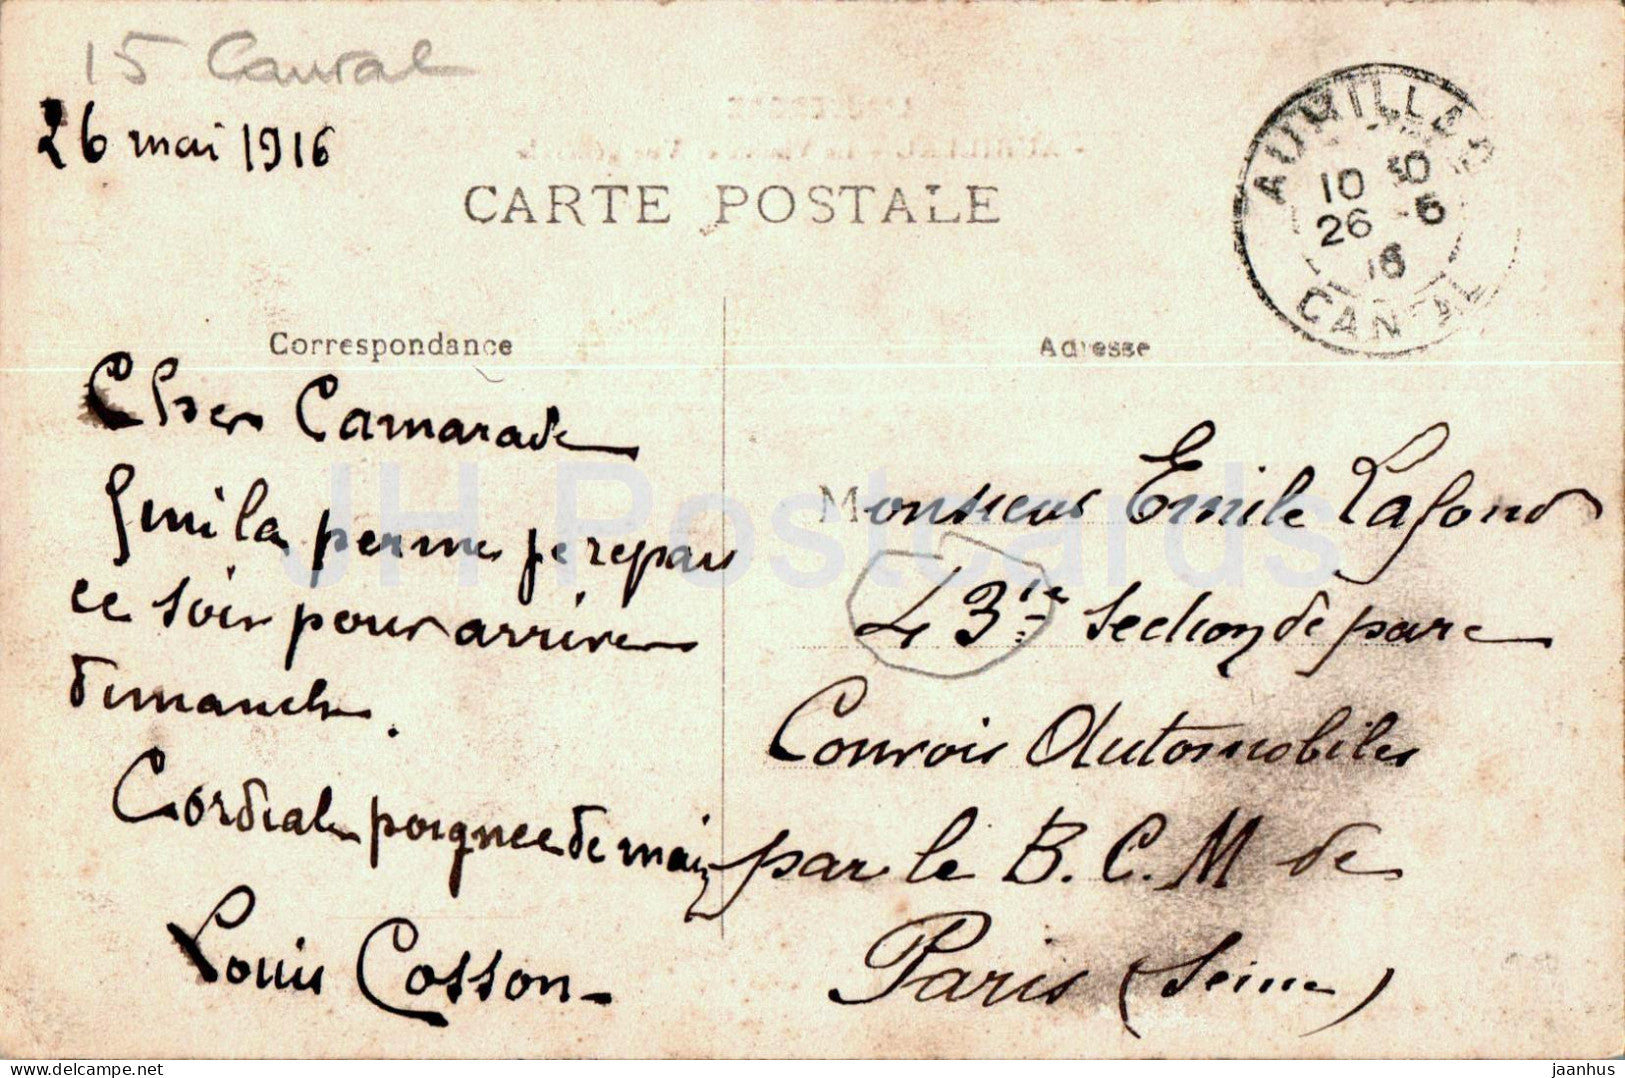 15 Cantal
26 mai 1916
CARTE POSTALE
AURILLAC
10 30
26 -5
16
CANTAL
Correspondance
Adresse
Cher Camarade
Fini la perme je repars
ce soir pour arriver
dimanche.
Cordiale poignée de main
Louis Cosson
Monsieur Emile Lafond
43ie Section de parc
Convois Automobiles
par le B.C.M de
Paris (Seine)
JH Postcards
delcampe.net
jaanhus